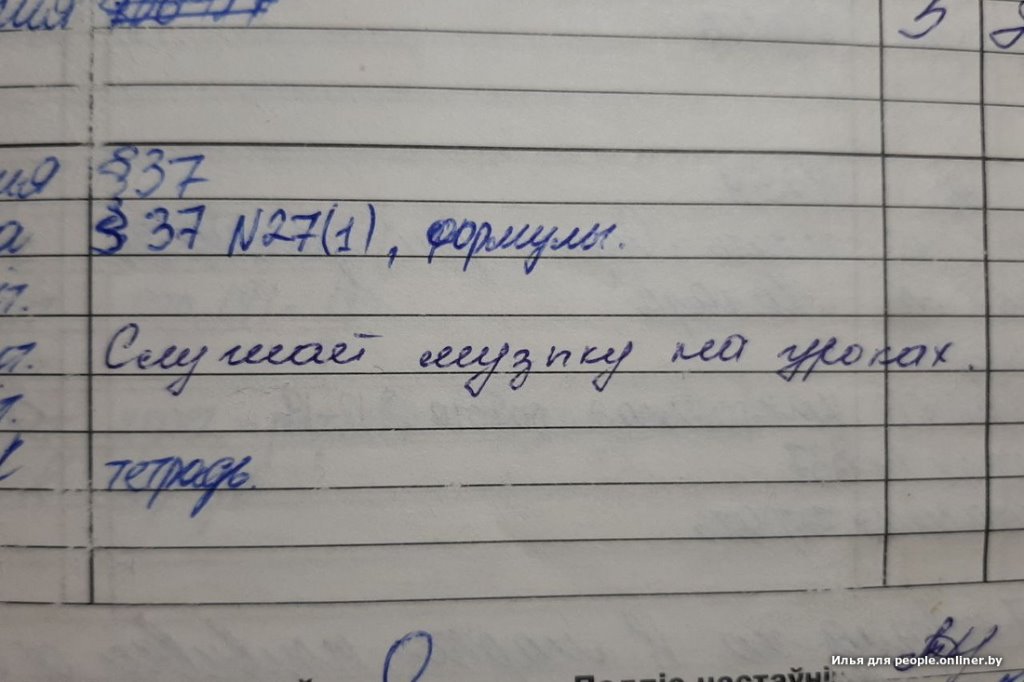 ия 5
ия §37
а §37 N27(1), формулы.
а. Слушает музыку на уроках.
т.
тетрадь.
Подпіс настаўні
Илья для people.onliner.by